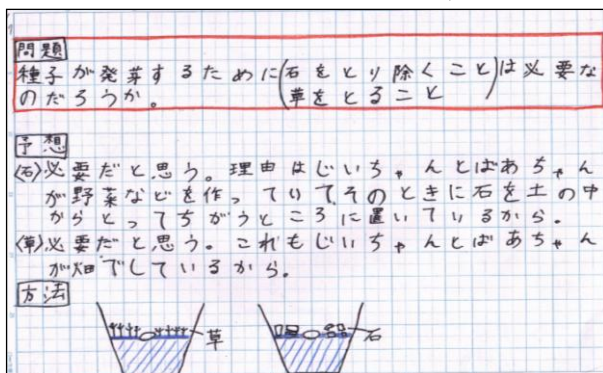 問題
種子が発芽するために(石をとり除くこと)は必要な
のだろうか。(草をとること)
予想
〈石〉必要だと思う。理由はじいちゃんとばあちゃん
が野菜などを作っていて、そのときに石を土の中
からとってちがうところに置いているから。
〈草〉必要だと思う。これもじいちゃんとばあちゃん
が畑でしているから。
方法
草
石